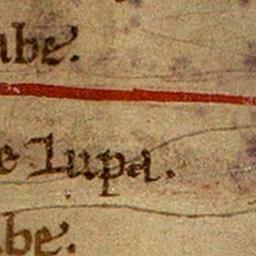 abe.
e lupa.
abe.